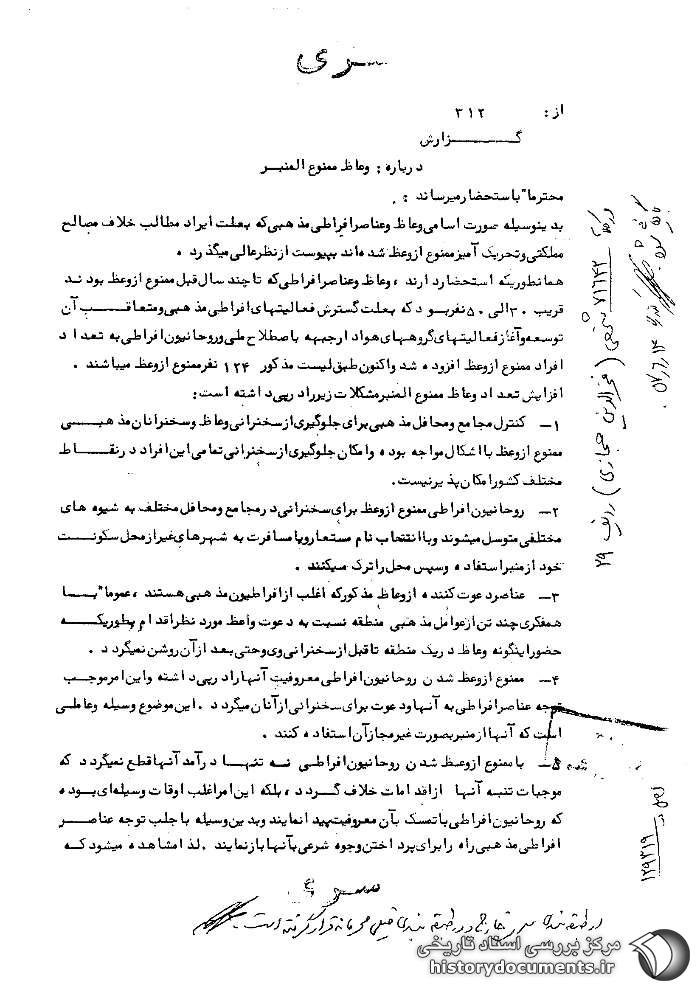 سری
از: ۳۱۲
گزارش
درباره: وعاظ ممنوع المنبر
محترما" باستحضار میرساند:
بدینوسیله صورت اسامی وعاظ و عناصر افراطی مذهبی که بعلت ایراد مطالب خلاف مصالح
مملکتی و تحریک آمیز ممنوع از وعظ شده‌اند بپیوست از نظر عالی میگذرد.
همانطوریکه استحضار دارند، وعاظ و عناصر افراطی که تا چند سال قبل ممنوع از وعظ بودند
قریب ۳۰ الی ۵۰ نفر بود که بعلت گسترش فعالیتهای افراطی مذهبی و متعاقب آن
توسعه و آغاز فعالیتهای گروههای هوادار جبهه باصطلاح ملی و روحانیون افراطی به تعداد
افراد ممنوع از وعظ افزوده شد و اکنون طبق لیست مذکور ۱۲۴ نفر ممنوع از وعظ میباشند.
افزایش تعداد وعاظ ممنوع المنبر مشکلات زیر را در پی داشته است:
۱- کنترل مجامع و محافل مذهبی برای جلوگیری از سخنرانی وعاظ و سخنرانان مذهبی
ممنوع از وعظ با اشکال مواجه بوده و امکان جلوگیری از سخنرانی تمامی این افراد در نقاط
مختلف کشور امکان پذیر نیست.
۲- روحانیون افراطی ممنوع از وعظ برای سخنرانی در مجامع و محافل مختلف به شیوه های
مختلفی متوسل میشوند و با انتخاب نام مستعار و یا مسافرت به شهرهای غیر از محل سکونت
خود از منبر استفاده و سپس محل را ترک میکنند.
۳- عناصر دعوت کننده از وعاظ مذکور که اغلب از افراطیون مذهبی هستند، عموما" با
همفکری چند تن از عوامل مذهبی منطقه نسبت به دعوت واعظ مورد نظر اقدام بطوریکه
حضور اینگونه وعاظ در یک منطقه تا قبل از سخنرانی وی و حتی بعد از آن روشن نمیگردد.
۴- ممنوع از وعظ شدن روحانیون افراطی معروفیت آنها را در پی داشته و این امر موجب
توجه عناصر افراطی به آنها و دعوت برای سخنرانی از آنان میگردد. این موضوع وسیله و عاملی
است که آنها از منبر بصورت غیر مجاز آن استفاده کنند.
۵- با ممنوع از وعظ شدن روحانیون افراطی نه تنها درآمد آنها قطع نمیگردد که
موجبات تنبه آنها از اقدامات خلاف گردد، بلکه این امر اغلب اوقات وسیله‌ای بوده
که روحانیون افراطی با تمسک بآن معروفیت پیدا نمایند و بدین وسیله با جلب توجه عناصر
افراطی مذهبی راه را برای پرداختن وجوه شرعی بآنها باز نمایند. لذا مشاهده میشود که
سری
از طبقه بندی سری خارج و در طبقه بندی خیلی محرمانه قرار گرفته است.
۷۱۶۴۲ شنقعی (فخرالدین حجازی) ردیف ۲۹
۵۷/۶/۱۴
اصل در
۱۲۹۳۱۹
مرکز بررسی اسناد تاریخی
historydocuments.ir